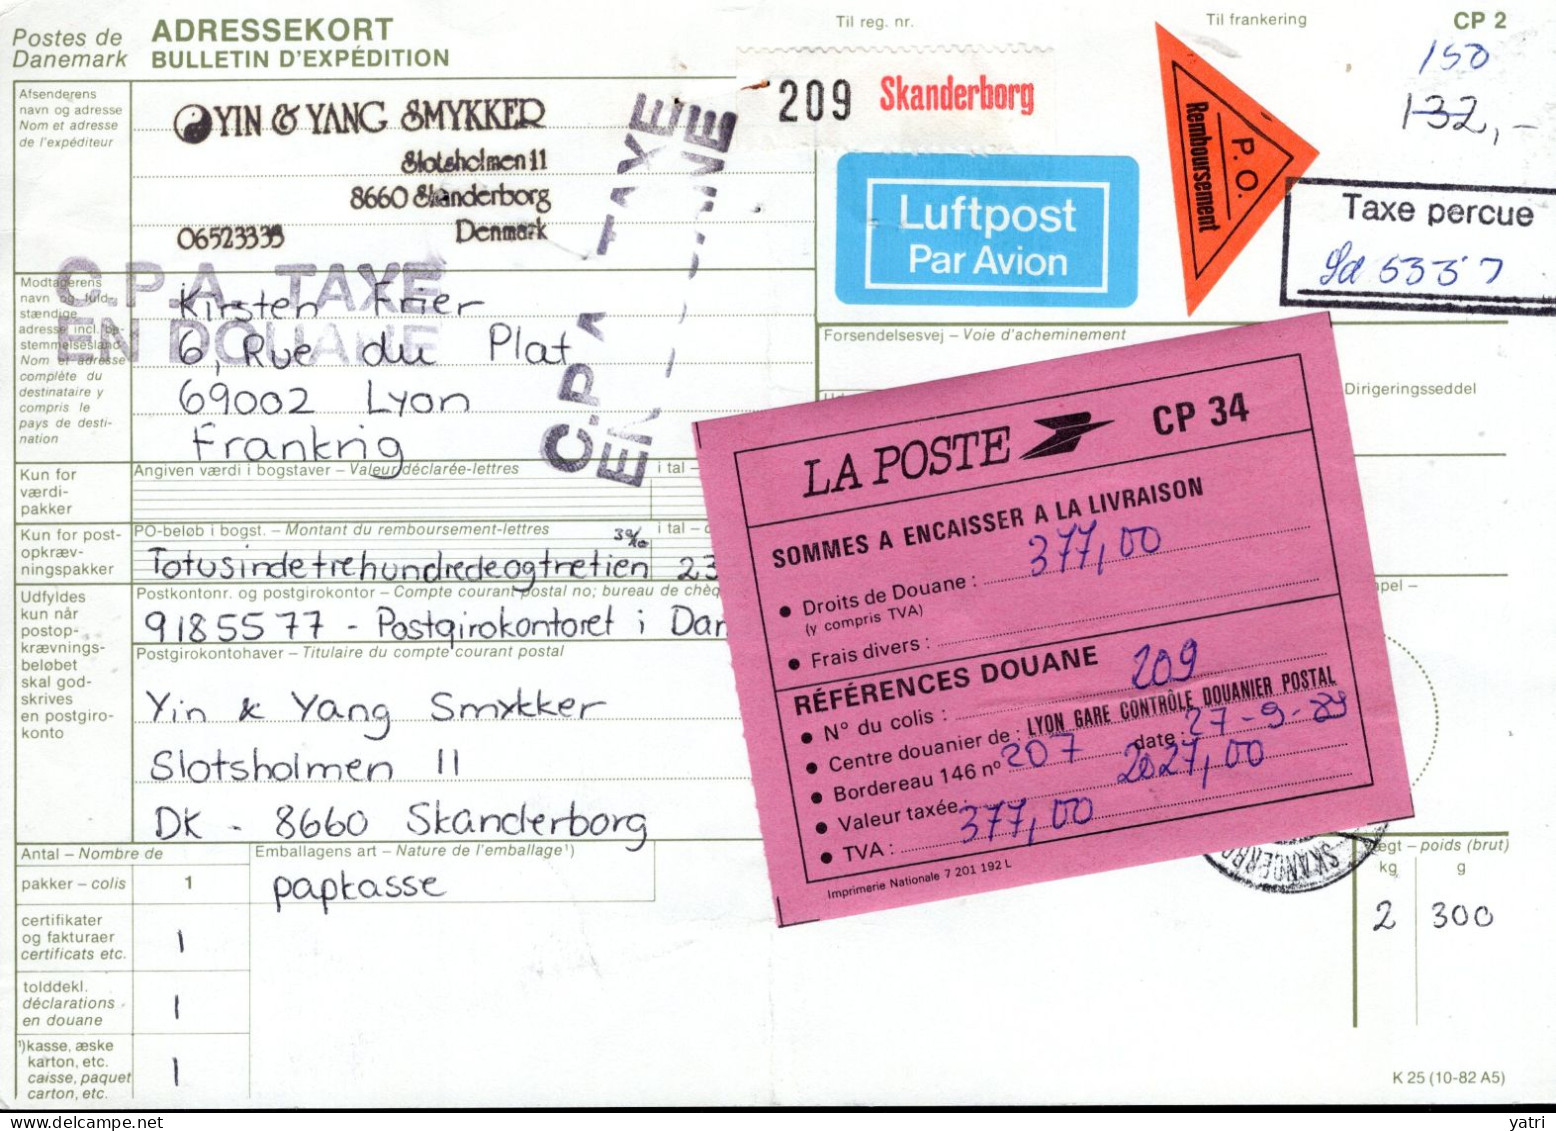 Postes de
Danemark
ADRESSEKORT
BULLETIN D'EXPÉDITION
Til reg. nr.
Til frankering
CP 2
150
132,-
209 Skanderborg
P.O.
Remboursement
Luftpost
Par Avion
Taxe percue
Afsenderens
navn og adresse
Nom et adresse
de l'expéditeur
YIN & YANG SMYKKER
Slotsholmen 11
8660 Skanderborg
06523333 Denmark
C.P.A. TAXE
EN DOUANE
C.P.A TAXE
Modtagerens
navn og fuld-
stændige
adresse incl. be-
stemmelsesland
Nom et adresse
complète du
destinataire y
compris le
pays de desti-
nation
Kirsten Frier
6, Rue du Plat
69002 Lyon
Frankrig
Forsendelsesvej – Voie d'acheminement
Dirigeringsseddel
Kun for
værdi-
pakker
Angiven værdi i bogstaver – Valeur déclarée-lettres
i tal –
Kun for post-
opkræv-
ningspakker
PO-beløb i bogst. – Montant du remboursement-lettres
i tal –
Totusindetrehundredeogtretien 23
Udfyldes
kun når
postop-
krævnings-
beløbet
skal god-
skrives
en postgiro-
konto
Postkontonr. og postgirokontor – Compte courant postal no; bureau de chèq
9185577 – Postgirokontoret i Dan
Postgirokontohaver – Titulaire du compte courant postal
Yin & Yang Smykker
Slotsholmen 11
DK - 8660 Skanderborg
LA POSTE CP 34
SOMMES A ENCAISSER A LA LIVRAISON
Droits de Douane : 377,00
(y compris TVA)
Frais divers :
RÉFÉRENCES DOUANE
N° du colis : 209
Centre douanier de : LYON GARE CONTRÔLE DOUANIER POSTAL
Bordereau 146 n° 207 date : 27-9-89
Valeur taxée : 2027,00
TVA : 377,00
Imprimerie Nationale 7 201 192 L
Antal – Nombre de
pakker – colis 1
Emballagens art – Nature de l'emballage¹)
papkasse
– poids (brut)
kg g
2 300
certifikater
og fakturaer
certificats etc.
1
tolddekl.
déclarations
en douane
1
¹)kasse, æske
karton, etc.
caisse, paquet
carton, etc.
1
K 25 (10-82 A5)
yatri